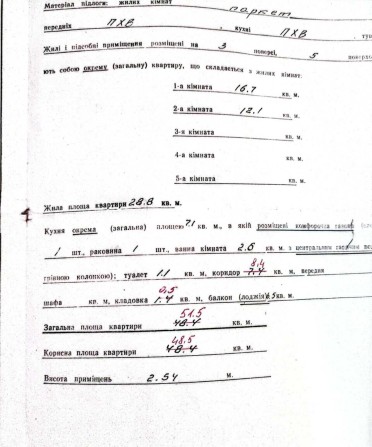 Матеріал підлоги: жилих кімнат паркет
передніх ПХВ, кухні ПХВ, туа
Жилі і підсобні приміщення розміщені на 3 поверсі, 5 поверхо
ють собою окрему (загальну) квартиру, що складається з жилих кімнат:
1-а кімната 16.7 кв. м.
2-а кімната 12.1 кв. м.
3-я кімната кв. м.
4-а кімната кв. м.
5-а кімната кв. м.
Жила площа квартири 28.8 кв. м.
Кухня окрема (загальна) площею 7.1 кв. м., в якій розміщені комфорочна
1 шт., раковина 1 шт., ванна кімната 2.6 кв. м. з центральним
8.4
грівною колонкою); туалет 1.1 кв. м, коридор 7.4 кв. м, передня
0,5
шафа кв. м, кладовка 1.4 кв. м, балкон (лоджія) кв. м.
51.5
Загальна площа квартири 48.4 кв. м.
48.5
Корисна площа квартири 48.4 кв. м.
Висота приміщень 2.54 м.